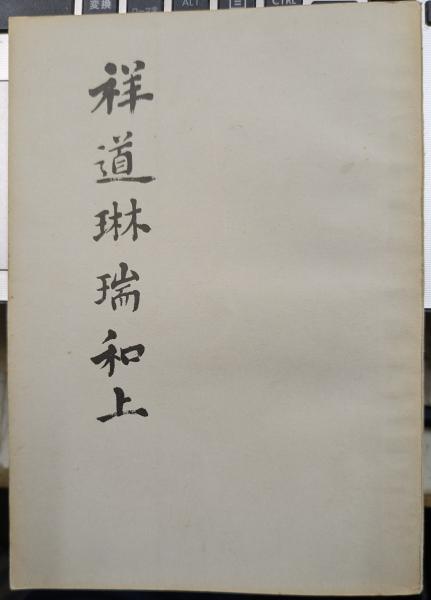 変換
ALT
CTRL
祥道琳瑞和上